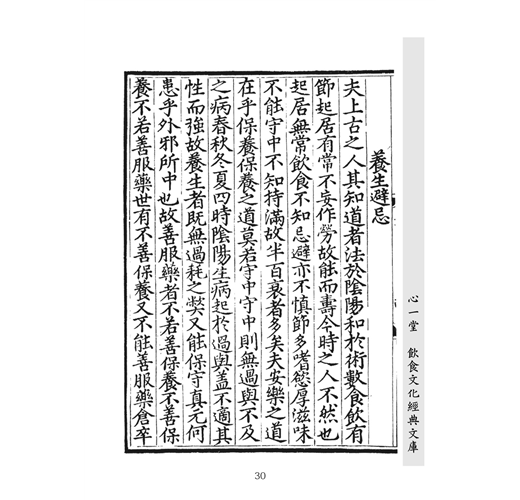 養生避忌
夫上古之人其知道者法於陰陽和於術數食飲有
節起居有常不妄作勞故能而壽今時之人不然也
起居無常飲食不知忌避亦不慎節多嗜慾厚滋味
不能守中不知持滿故半百衰者多矣夫安樂之道
在乎保養保養之道莫若守中守中則無過與不及
之病春秋冬夏四時陰陽生病起於過與蓋不適其
性而強故養生者既無過耗之弊又能保守真元何
患乎外邪所中也故善服藥者不若善保養不善保
養不若善服藥世有不善保養又不能善服藥倉卒
心一堂 飲食文化經典文庫
30